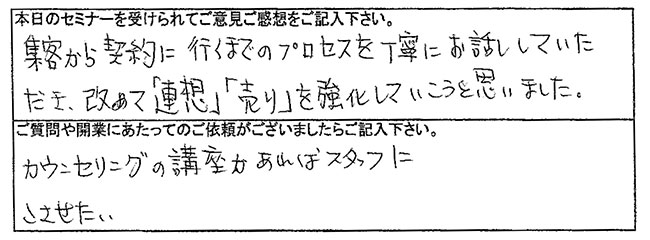 本日のセミナーを受けられてご意見ご感想をご記入下さい。
集客から契約に行くまでのプロセスを丁寧にお話ししていた
だき、改めて「連想」「売り」を強化していこうと思いました。
ご質問や開業にあたってのご依頼がございましたらご記入下さい。
カウンセリングの講座があればスタッフに
させたい